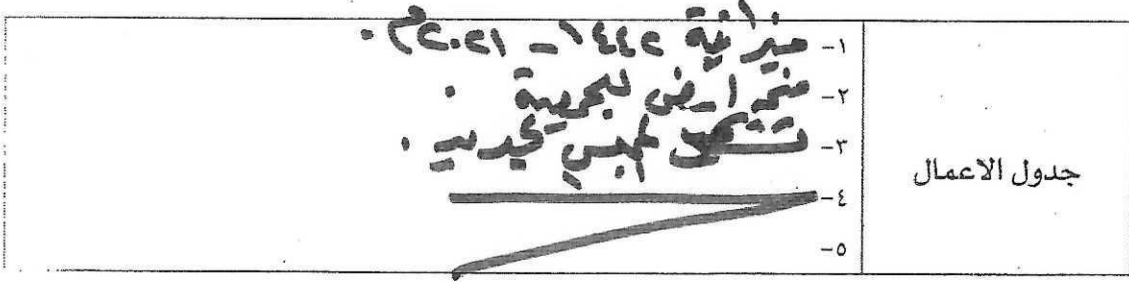 جدول الاعمال
١- ميزانية ١٤٤٢ - ٢٠٢١م.
٢- منح ارض للجمعية.
٣- تشكيل المجلس الجديد.
٤-
٥-